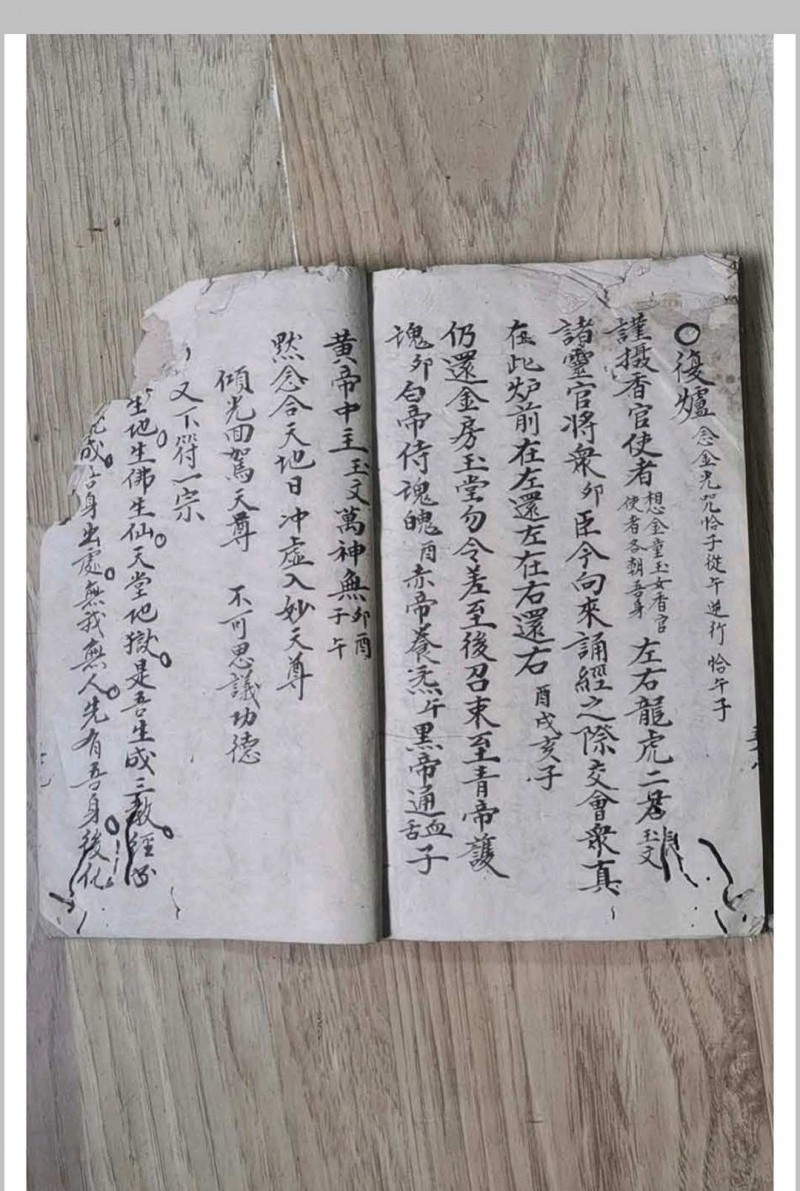 ○復爐 念金光咒恰子從午逆行 恰午子
謹摄香官使者 想金童玉女香官使者各朝吾身 左右龍虎二君 玉文
諸靈官將衆 卯 臣今向來誦經之際交會衆真
在此炉前在左還左在右還右 酉戌亥子
仍還金房玉堂勿令差至後召来至青帝護
魂 卯 白帝侍魂魄 酉 赤帝養炁 午 黒帝通血 子
黄帝中主 玉文 萬神無 卯酉子午
黙念合天地日 冲虛入妙天尊
傾光回駕天尊 不可思議功德
又下符一宗
生地生佛生仙天堂地獄是吾生成三教經
成 身出處無我無人先有吾身後化